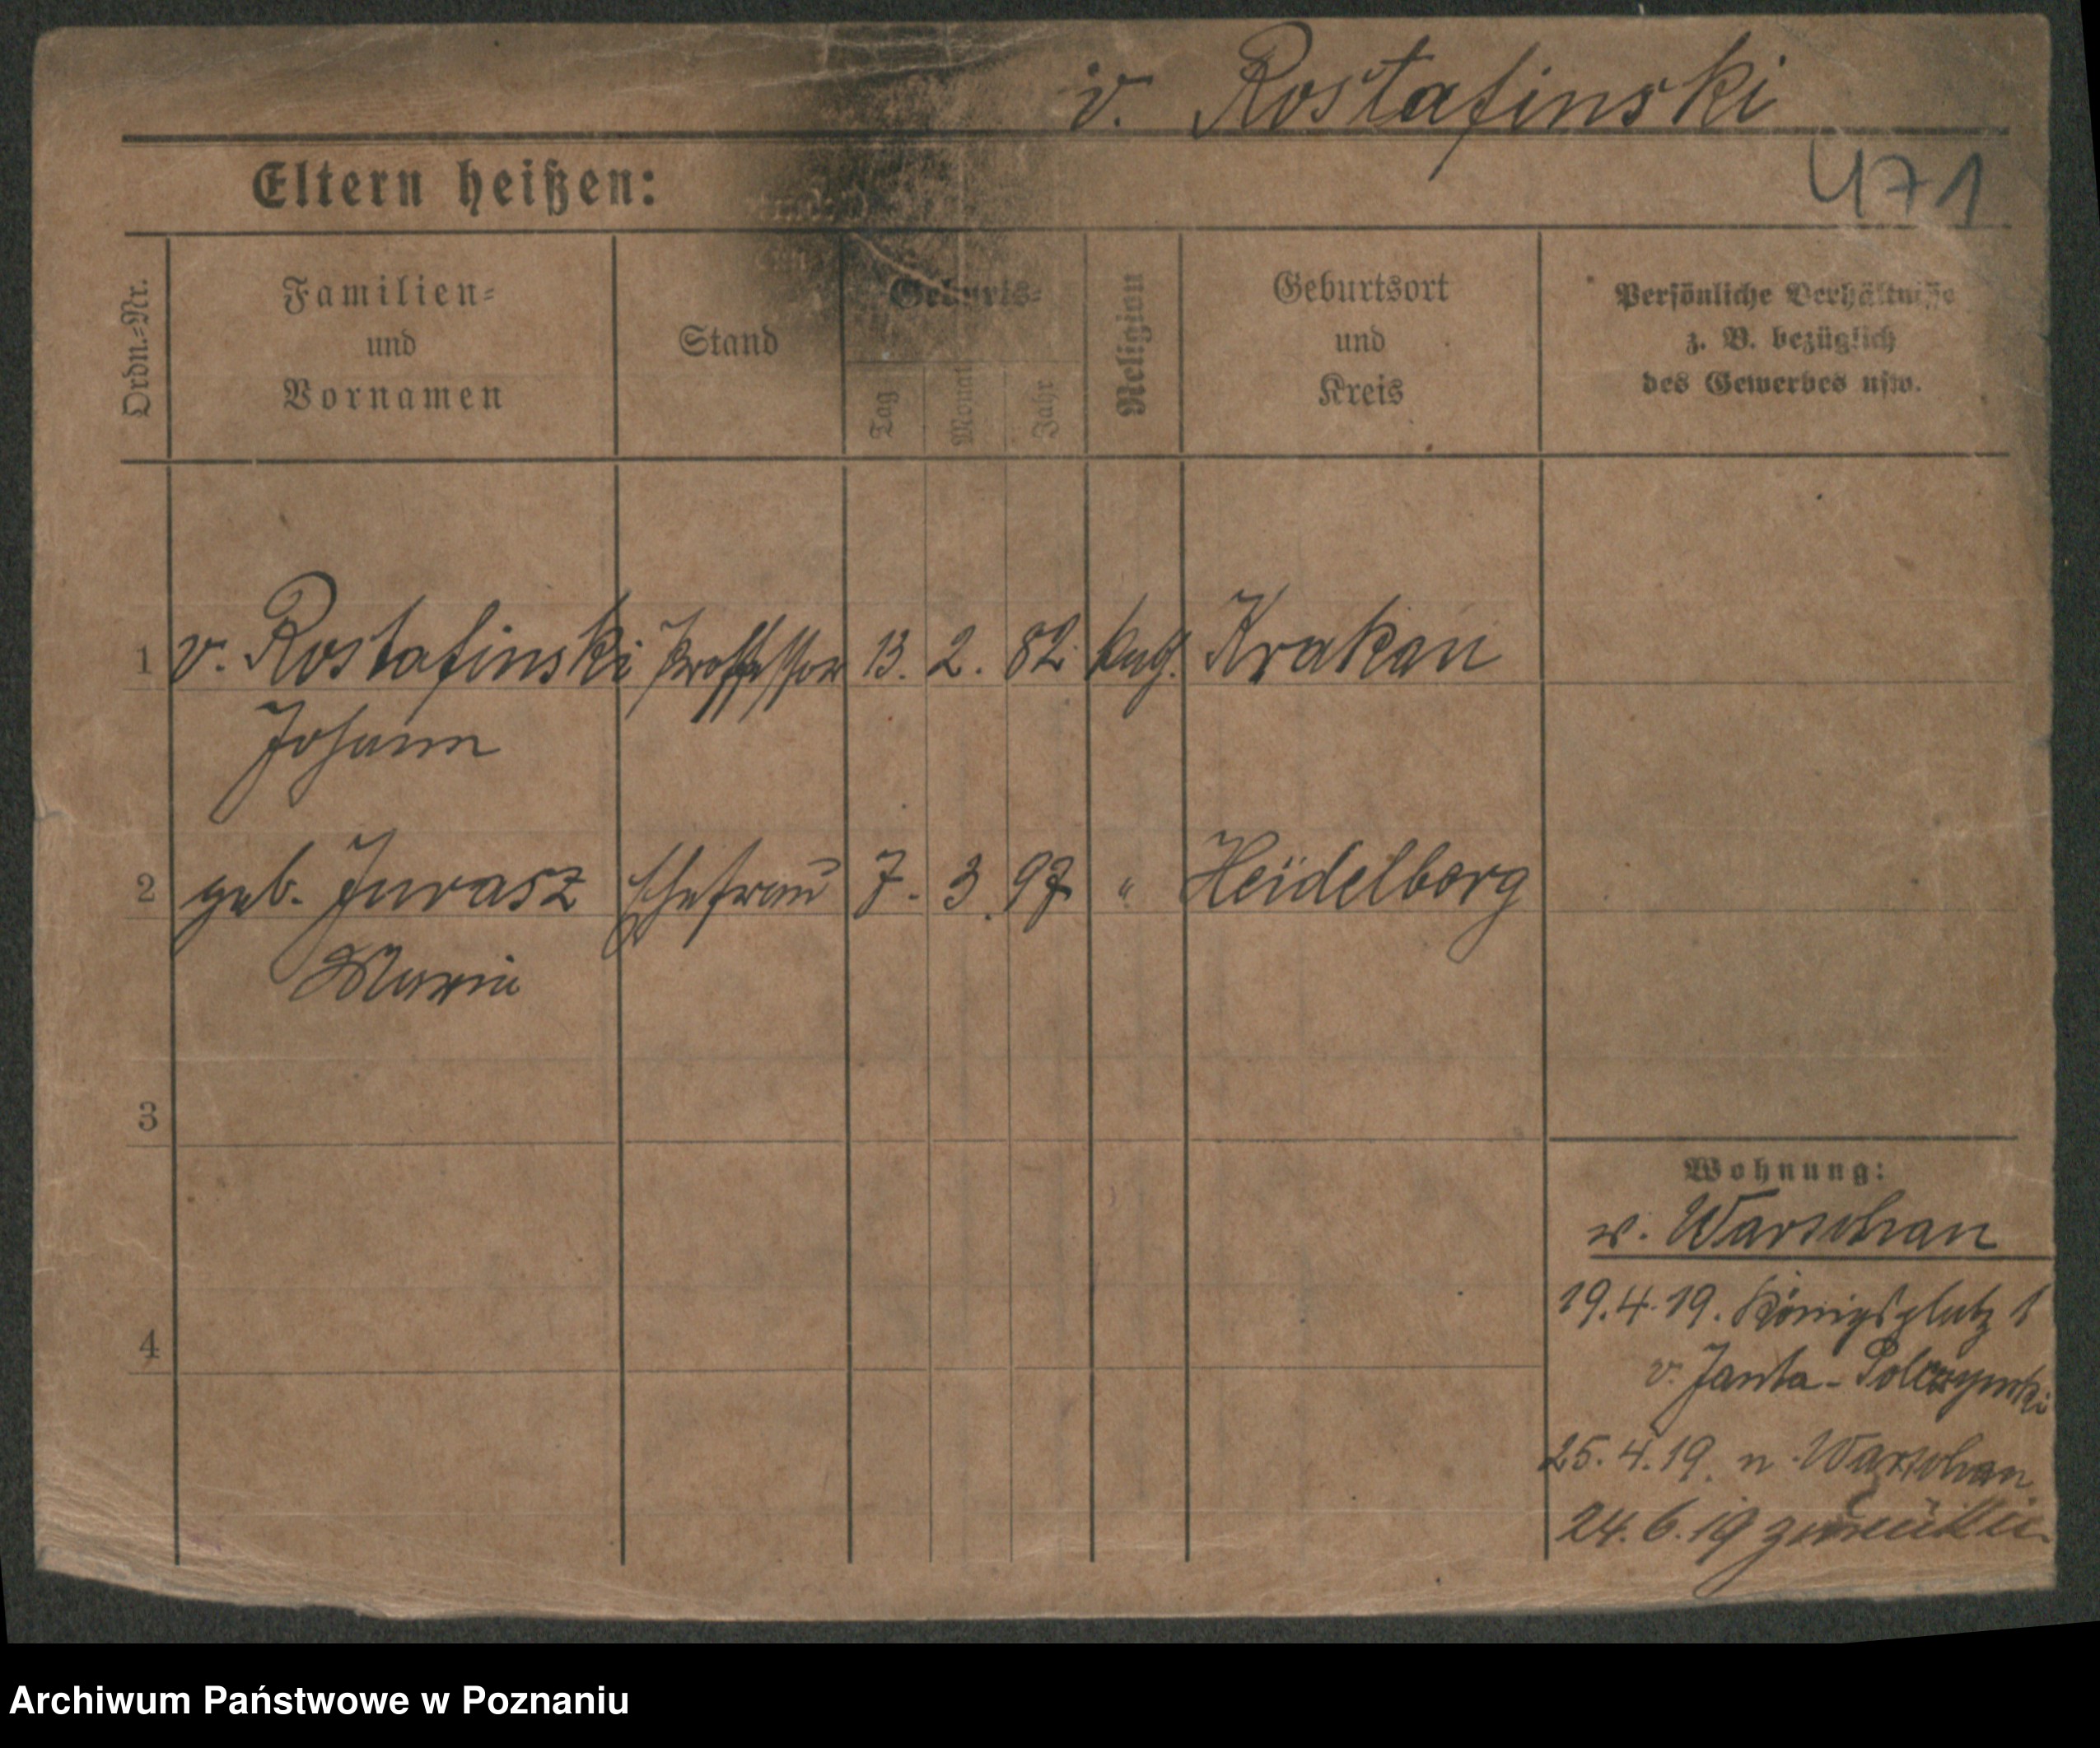 v. Rostafinski
Eltern heißen:
471
Ordn.=Nr.
Familien=
und
Vornamen
Stand
Geburts=
Tag
Monat
Jahr
Religion
Geburtsort
und
Kreis
Persönliche Verhältnisse
z. B. bezüglich
des Gewerbes usw.
1 v. Rostafinski Professor 13. 2. 82. kath. Krakau
Johann
2 geb. Jurasz Ehefrau 7. 3. 97 " Heidelberg
Maria
3
4
Wohnung:
v. Warschau
19.4.19. Königsplatz 1
v. Janta-Polczynski
25.4.19. n. Warschau
24.6.19
Archiwum Państwowe w Poznaniu